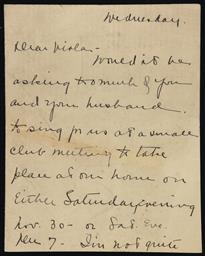 Wednesday.
Dear Viola -
Would it be
asking too much of you
and your husband
to sing for us at a small
club meeting to take
place at our home on
either Saturday evening
Nov. 30 - or Sat. Eve.
Dec 7 - I'm not quite